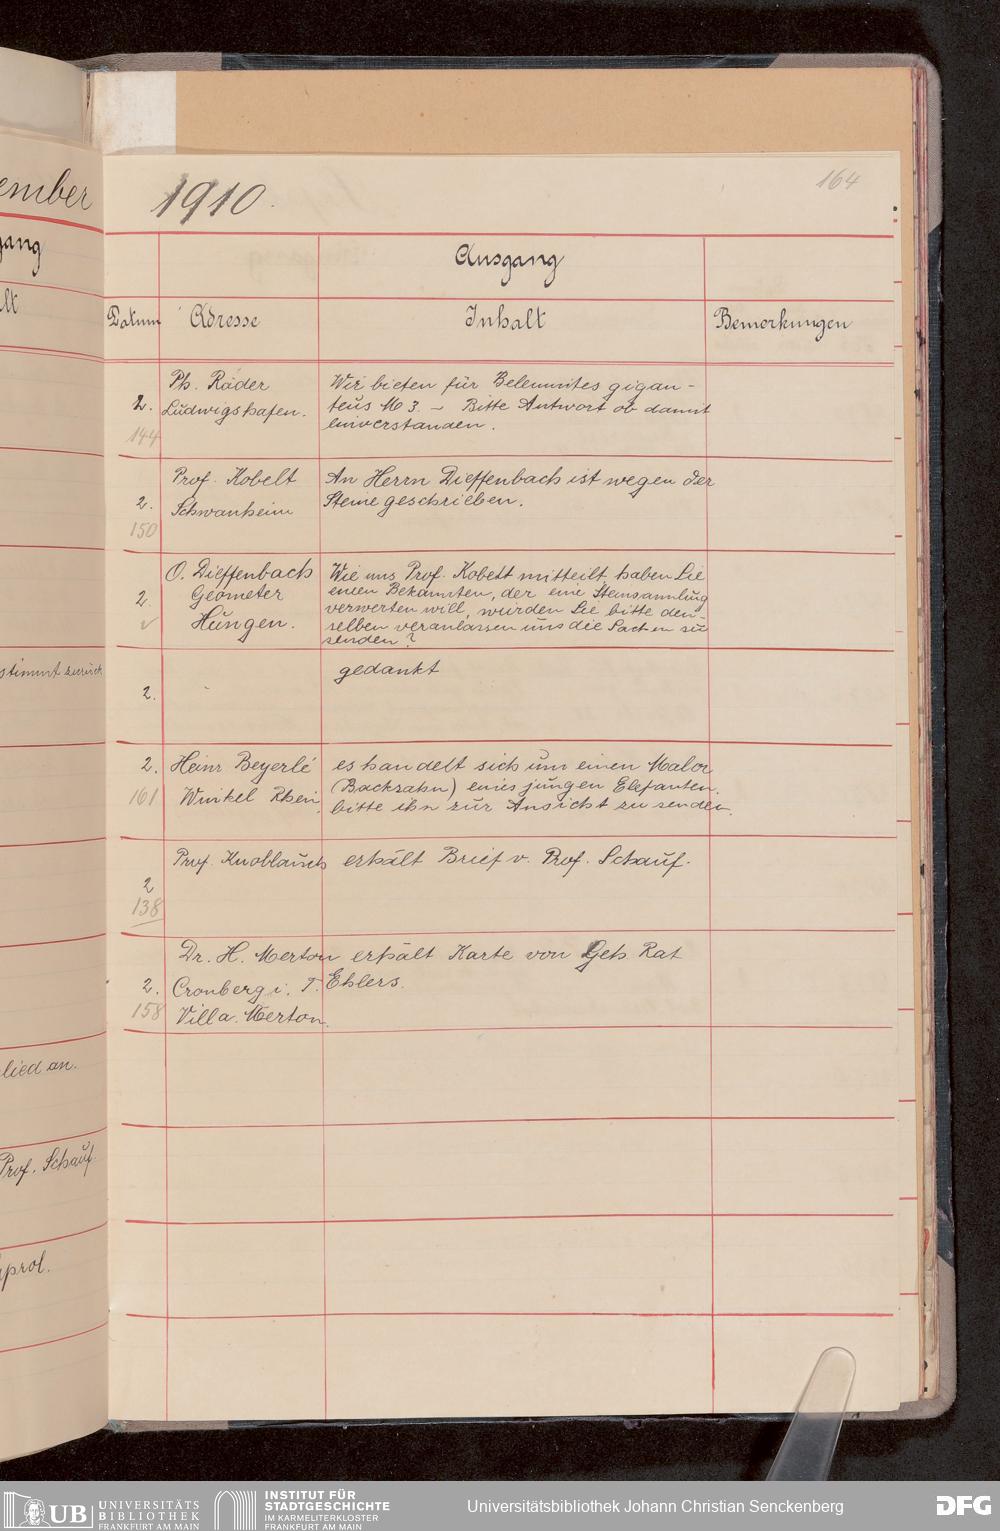 ember
gang
lt
stimmt zurück
lied an.
Prof. Schauf.
prol.
1910.
164
Ausgang
Datum Adresse Inhalt Bemerkungen
Ph. Räder Wir bieten für Belemnites gigan-
2. Ludwigshafen. teus M 3. - Bitte Antwort ob damit
144 einverstanden.
Prof. Kobelt An Herrn Dieffenbach ist wegen der
2. Schwanheim Steine geschrieben.
150
O. Dieffenbach Wie uns Prof. Kobelt mitteilt haben Sie
2. Geometer einen Bekannten, der eine Steinsammlung
Hungen. verwerten will, würden Sie bitte den-
selben veranlassen uns die Sachen zu
senden?
gedankt
2.
2. Heinr Beyerlé es handelt sich um einen Malor
161 Winkel Rhein. (Backzahn) eines jungen Elefanten.
bitte ihn zur Ansicht zu senden.
Prof. Knoblauch erhält Brief v. Prof. Schauf.
2
138
Dr. H. Merton erhält Karte von Geh. Rat
2. Cronberg i. T. Ehlers.
158 Villa Merton.
UB UNIVERSITÄTS
BIBLIOTHEK
FRANKFURT AM MAIN
INSTITUT FÜR
STADTGESCHICHTE
IM KARMELITERKLOSTER
FRANKFURT AM MAIN
Universitätsbibliothek Johann Christian Senckenberg
DFG